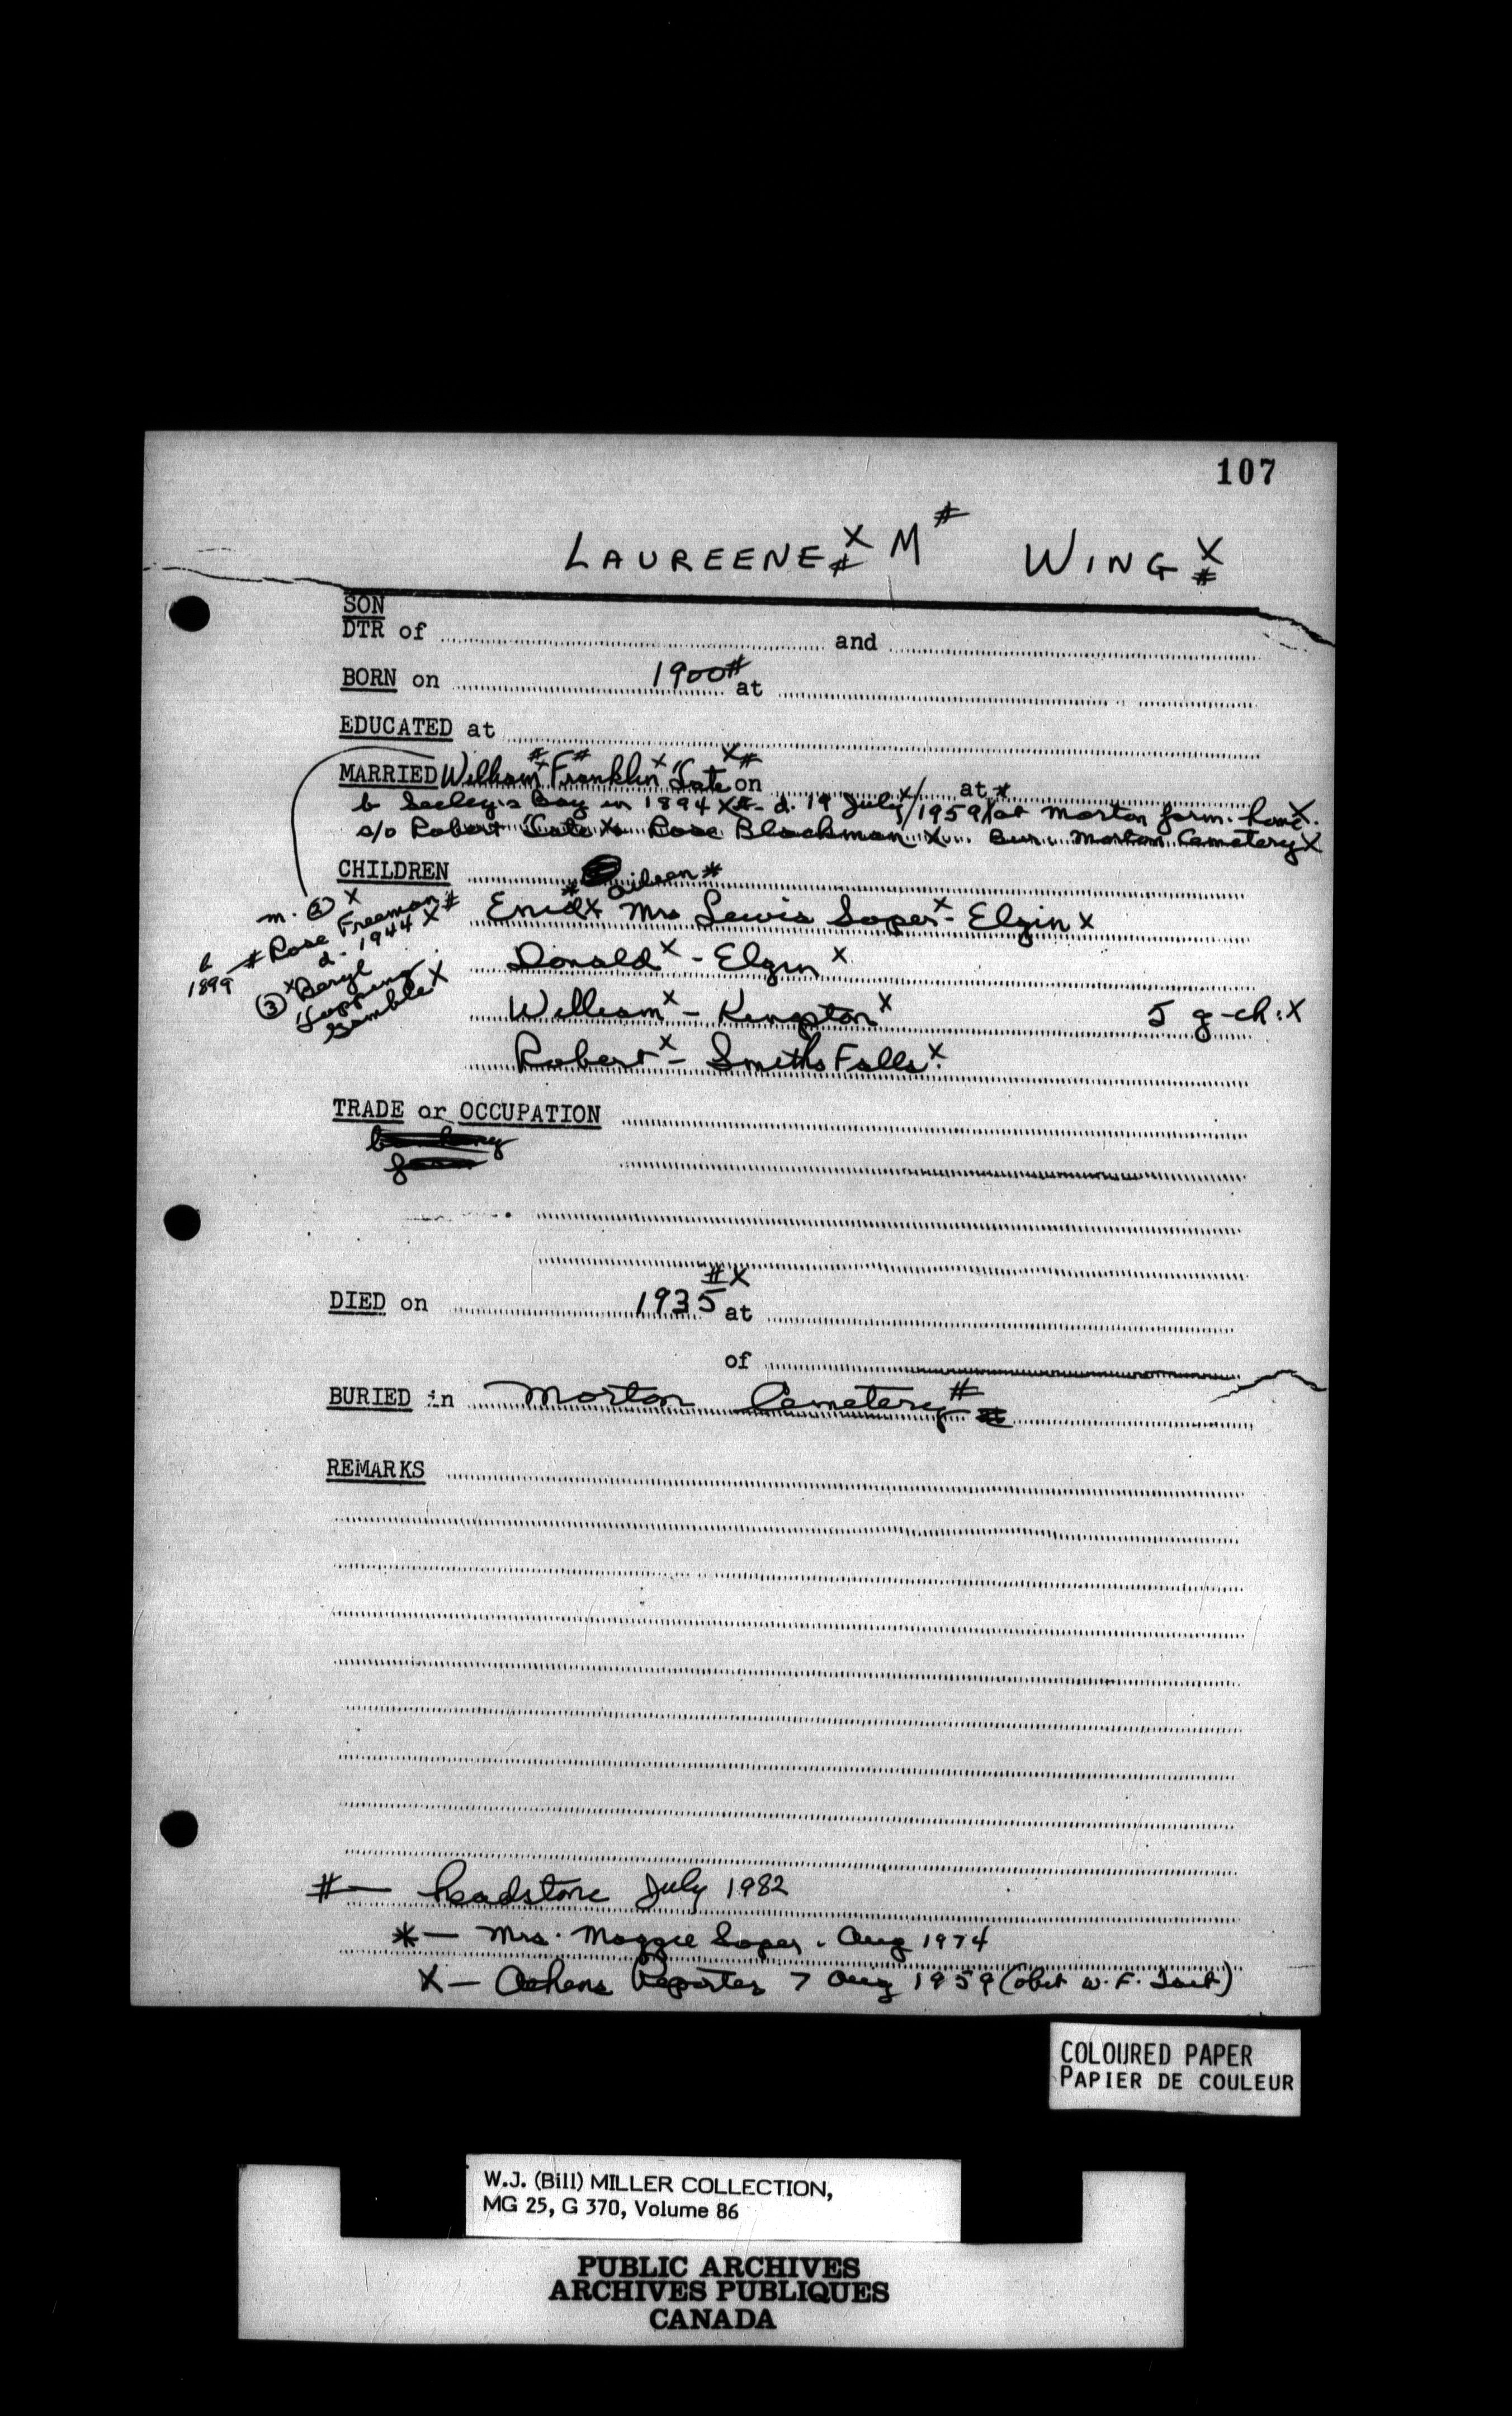 107
LAUREENE X # M # WING X #
SON
DTR of and
BORN on 1900 # at
EDUCATED at
MARRIED William # X Franklin # X Tate X # on at #
b Seeley's Bay in 1894 X # - d. 19 July X / 1959 X at Morton farm home X.
s/o Robert Tate X & Rose Blackman X Bur. Morton Cemetery X
CHILDREN
* Eileen *
Enid X Mrs Lewis Soper X - Elgin X
Donald X - Elgin X
William X - Kingston X 5 g-ch: X
Robert X - Smiths Falls X.
m. ② X
# Rose Freeman #
b 1899
d. 1944 X
③ X Beryl
Topping
Gamble X
TRADE or OCCUPATION
DIED on 1935 # X at
of
BURIED in Morton Cemetery #
REMARKS
# — headstone July 1982
* — Mrs. Maggie Soper. Aug 1974
X — Athens Reporter 7 Aug 1959 (obit W. F. Tait)
COLOURED PAPER
PAPIER DE COULEUR
W.J. (Bill) MILLER COLLECTION,
MG 25, G 370, Volume 86
PUBLIC ARCHIVES
ARCHIVES PUBLIQUES
CANADA